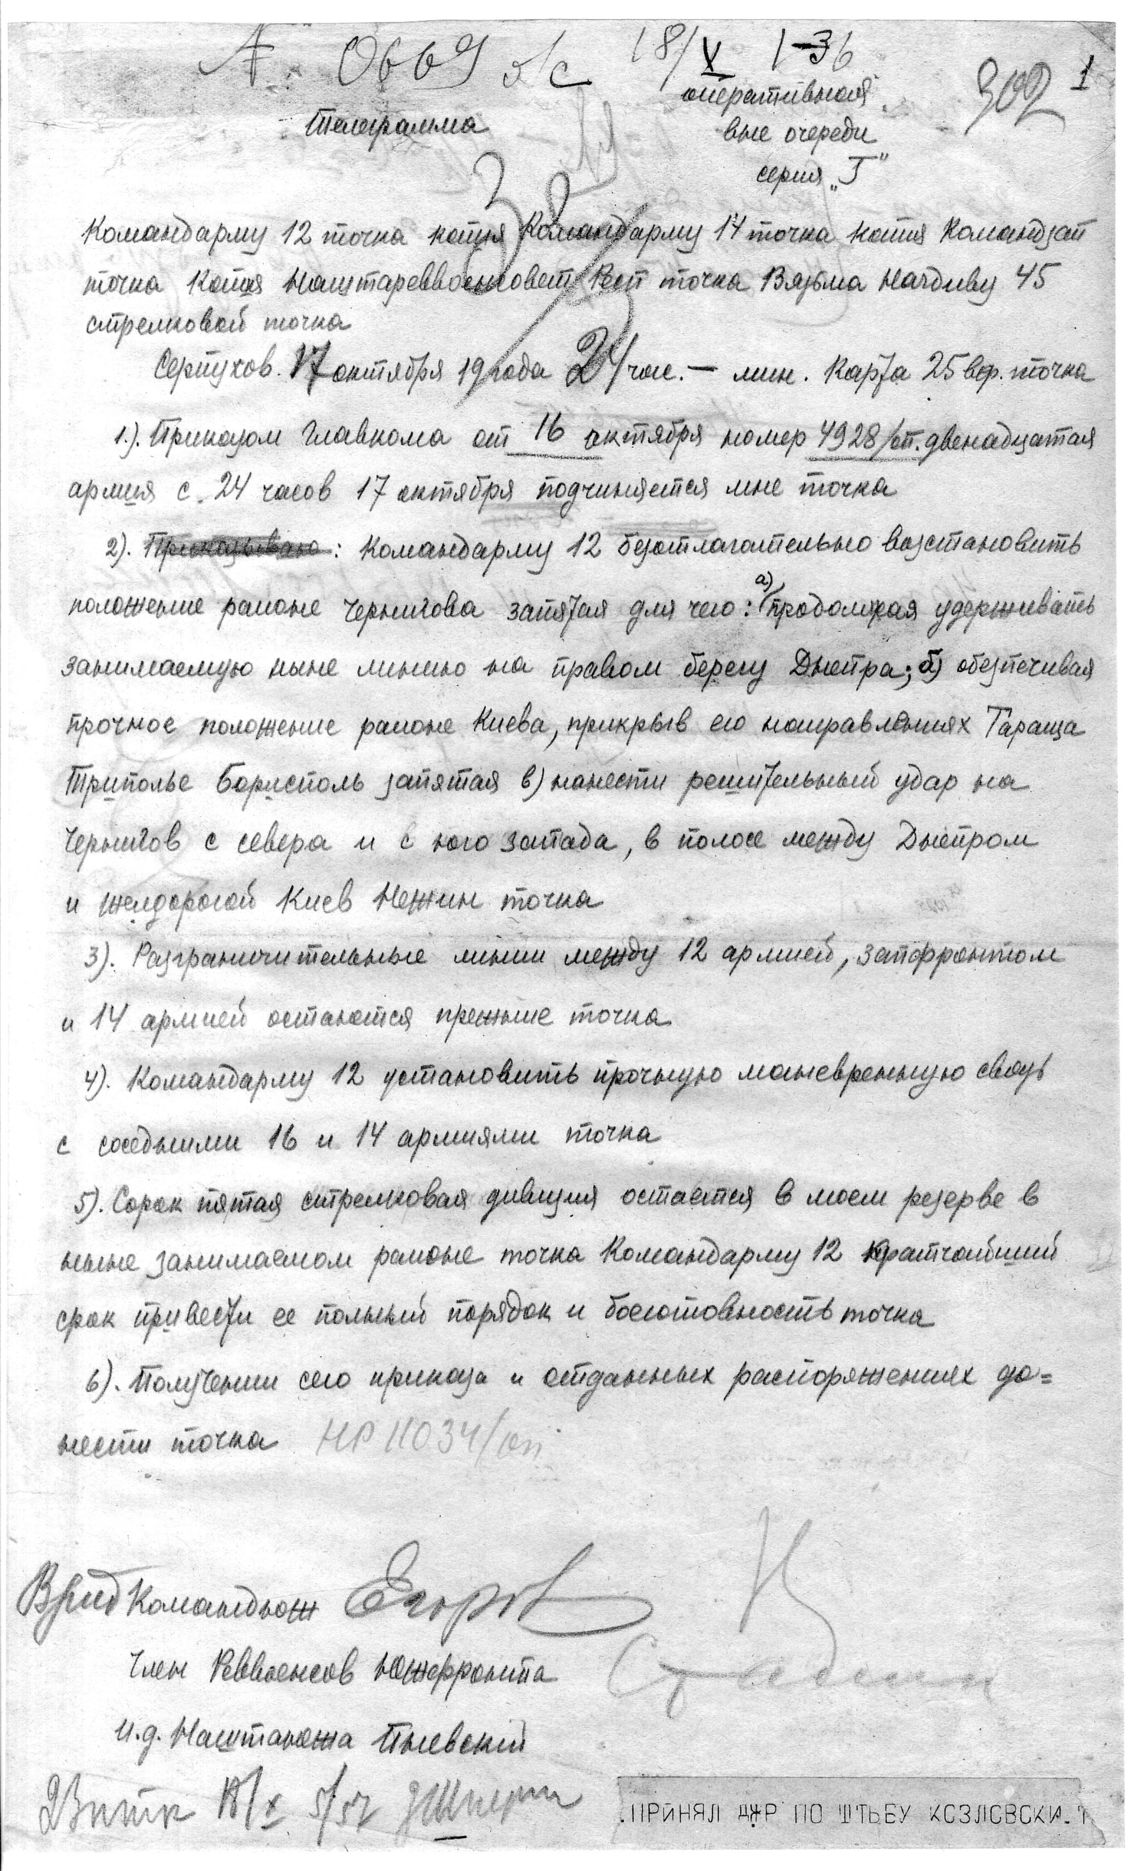 18/X 1-36
оперативная
302 1
Телеграмма
вне очереди
серия „Г"
Командарму 12 точка копия Командарму 14 точка копия Командзап
точка копия Наштареввоенсовет Респ точка Вязьма Начдиву 45
стрелковой точка
Серпухов. 17 октября 19 года 24 час. — мин. Карта 25 вер. точка
1). Приказом Главкома от 16 октября номер 4928/оп. двенадцатая
армия с 24 часов 17 октября подчиняется мне точка
2). Приказываю: Командарму 12 безотлагательно возстановить
положение районе Чернигова запятая для чего: а) продолжая удерживать
занимаемую ныне линию на правом берегу Днепра; б) обезпечивая
прочное положение районе Киева, прикрыв его направлениях Тараща
Триполье Борисполь запятая в) нанести решительный удар на
Чернигов с севера и с юго запада, в полосе между Днепром
и желдорогой Киев Нежин точка
3). Разграничительные линии между 12 армией, запфронтом
и 14 армией остаются прежние точка
4). Командарму 12 установить прочную маневренную связь
с соседними 16 и 14 армиями точка
5). Сорок пятая стрелковая дивизия остается в моем резерве в
ныне занимаемом районе точка Командарму 12 кратчайший
срок привести ее полный порядок и боеготовность точка
6). Получении сего приказа и отданных распоряжениях до=
нести точка НР 11034/оп
Врид Командюж Егоров
Член Реввоенсов Южфронта Сталин
и.д. Наштаюжа Пневский
18/X 5/57
ПРИНЯЛ ДЖР ПО ШТАБУ КОЗЛОВСКИ